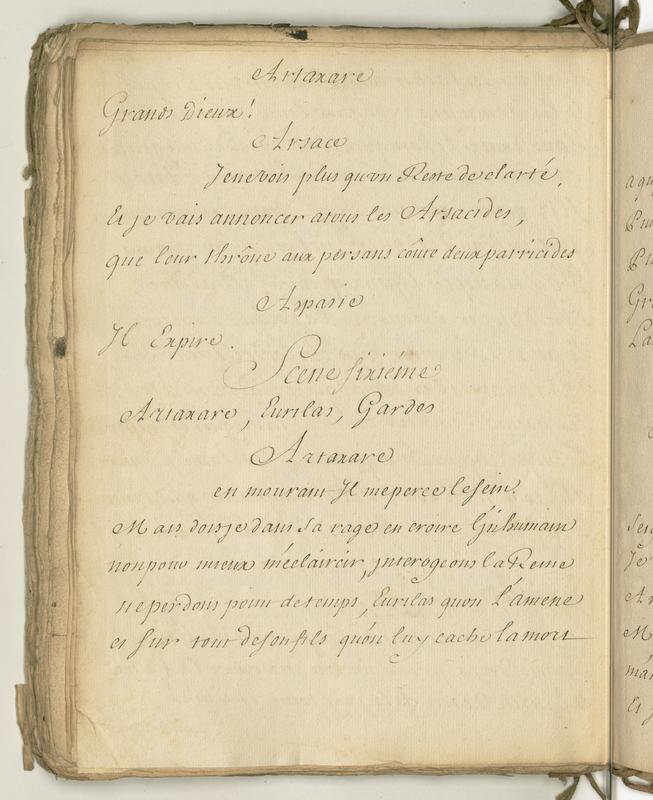 Artaxare
Grands Dieux!
Arsace
Jenevois plus quvn Reste de clarté,
Et je vais annoncer atous les Arsacides,
que leur thrône aux persans coûte deux parricides
Aspasie
Il Expire.
Scene sixiéme
Artaxare, Eurilas, Gardes
Artaxare
en mourant Il me perce le sein!
Mais doisje dans sa rage en croire
nonpour mieux méclaircir, jnterogeons la Reine
ne perdons point de temps, Eurilas quon L'amene
et sur tout de son fils quón luy cache la mort
a qu
Gr
La
Je
Ar
M
mai
Et j